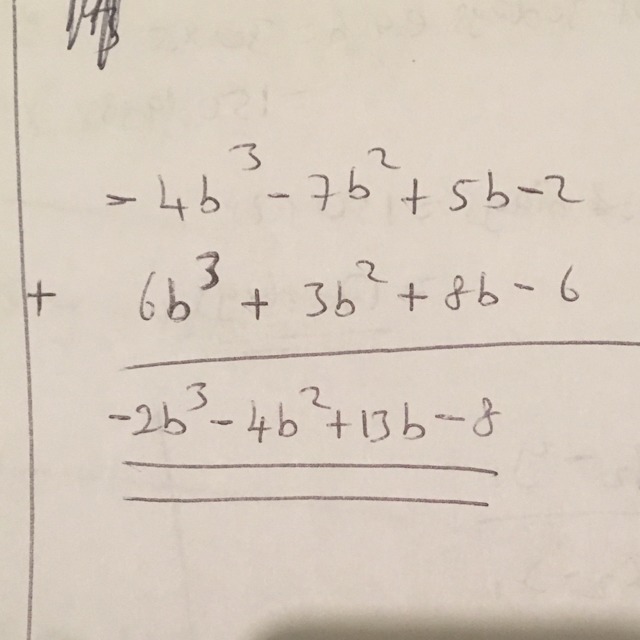 - 4b³ - 7b² + 5b - 2
+ 6b³ + 3b² + 8b - 6
-2b³ - 4b² + 13b - 8